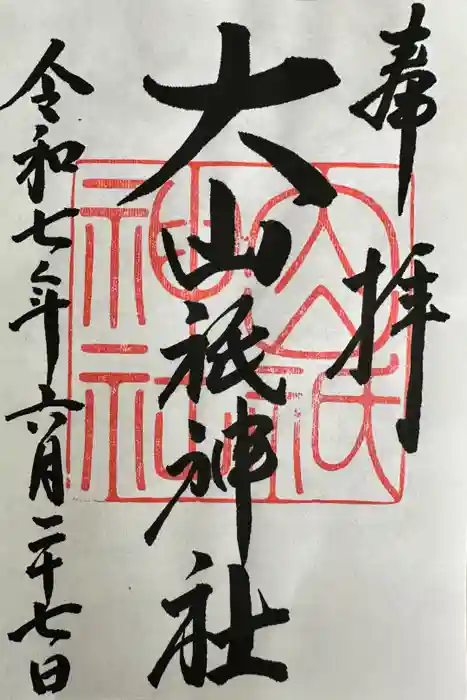 奉拝
大山祇神社
大山祇神社
令和七年六月二十七日